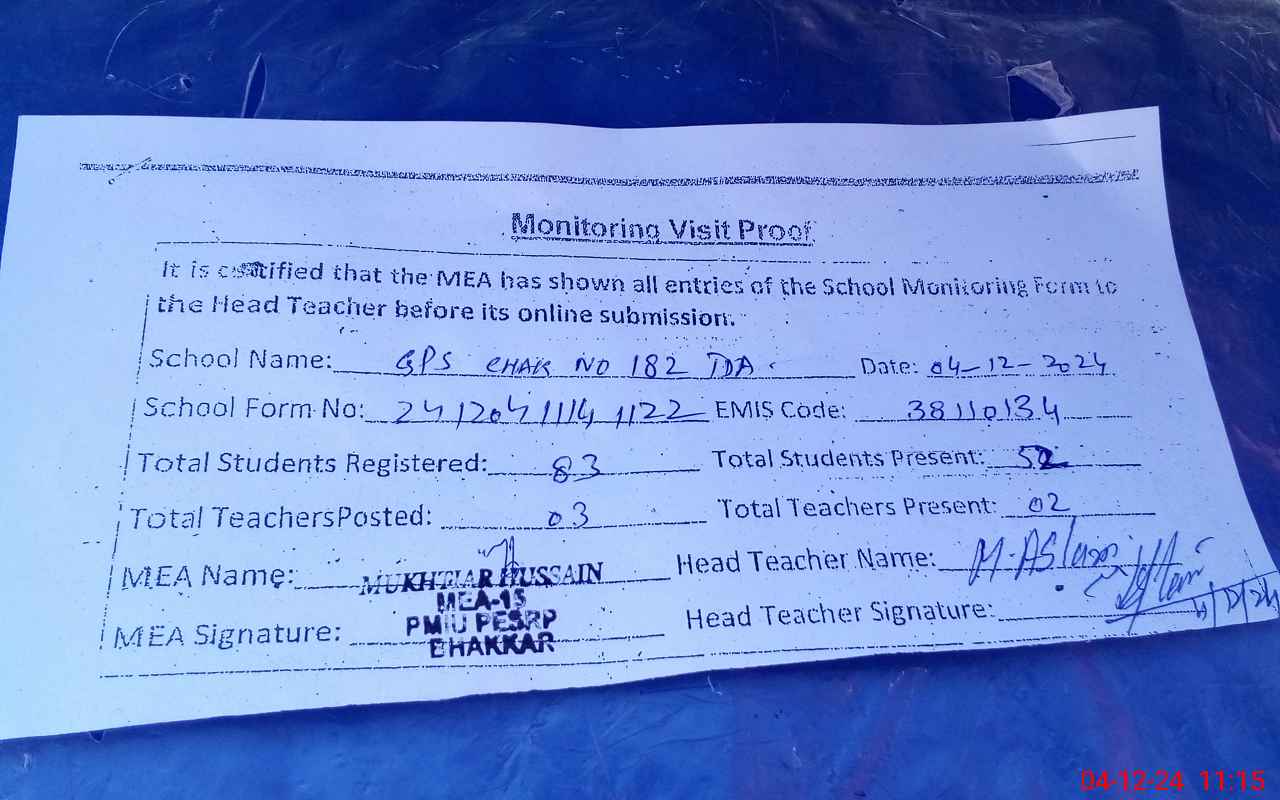 Monitoring Visit Proof
It is certified that the MEA has shown all entries of the School Monitoring Form to
the Head Teacher before its online submission.
School Name: GPS CHAK NO 182 TDA. Date: 04-12-2024
School Form No: 24120411141122 EMIS Code: 38110134
Total Students Registered: 83 Total Students Present: 52
Total Teachers Posted: 03 Total Teachers Present: 02
MEA Name: MUKHTIAR HUSSAIN Head Teacher Name: M. Aslam
MEA-15
MEA Signature: PMIU PESRP Head Teacher Signature:
BHAKKAR
04-12-24 11:15